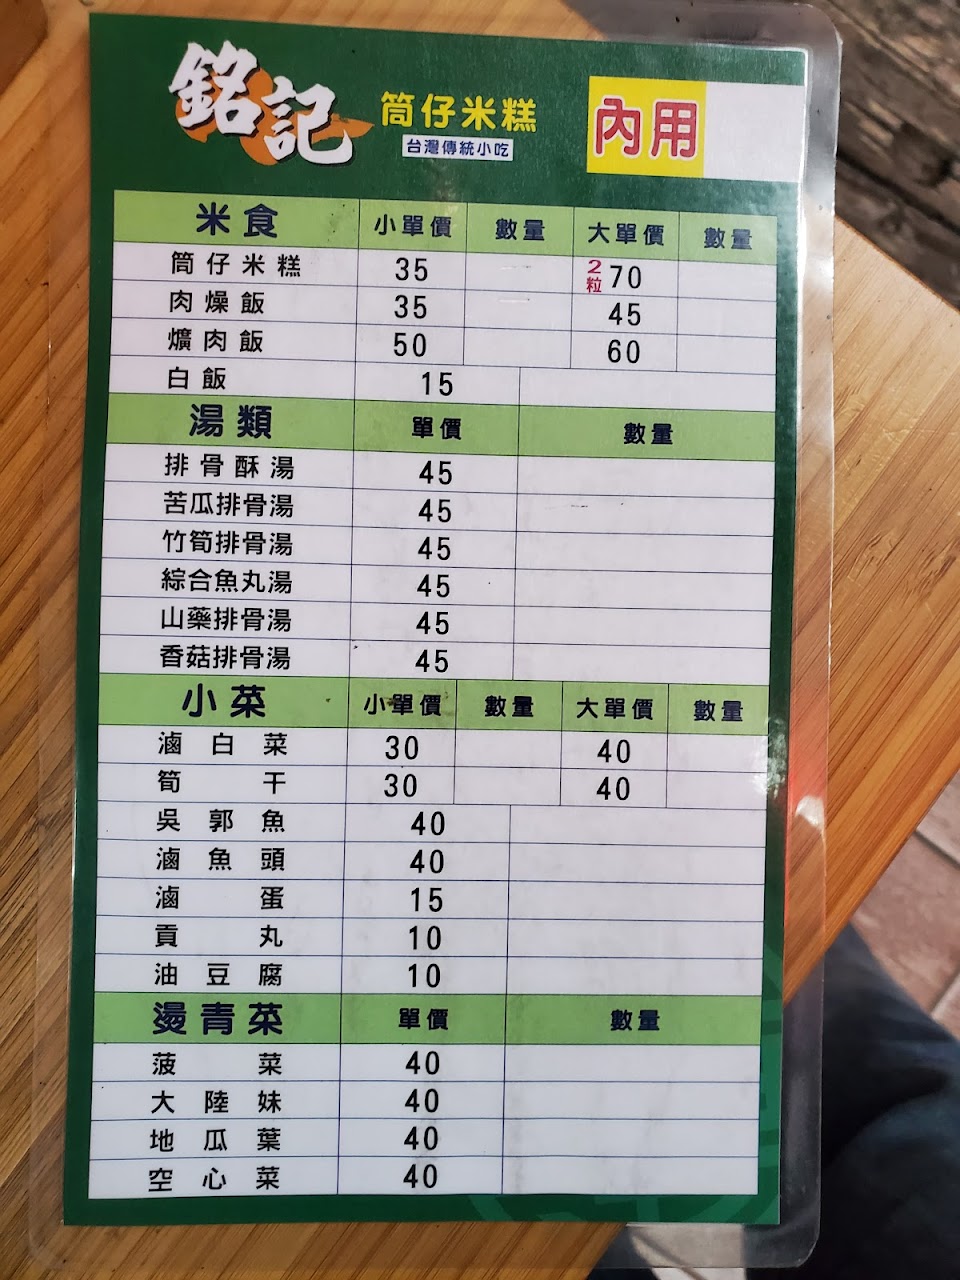 銘記 筒仔米糕 內用
台灣傳統小吃
米食 小單價 數量 大單價 數量
筒仔米糕 35 2粒 70
肉燥飯 35 45
爌肉飯 50 60
白飯 15
湯類 單價 數量
排骨酥湯 45
苦瓜排骨湯 45
竹筍排骨湯 45
綜合魚丸湯 45
山藥排骨湯 45
香菇排骨湯 45
小菜 小單價 數量 大單價 數量
滷白菜 30 40
筍干 30 40
吳郭魚 40
滷魚頭 40
滷蛋 15
貢丸 10
油豆腐 10
燙青菜 單價 數量
菠菜 40
大陸妹 40
地瓜葉 40
空心菜 40